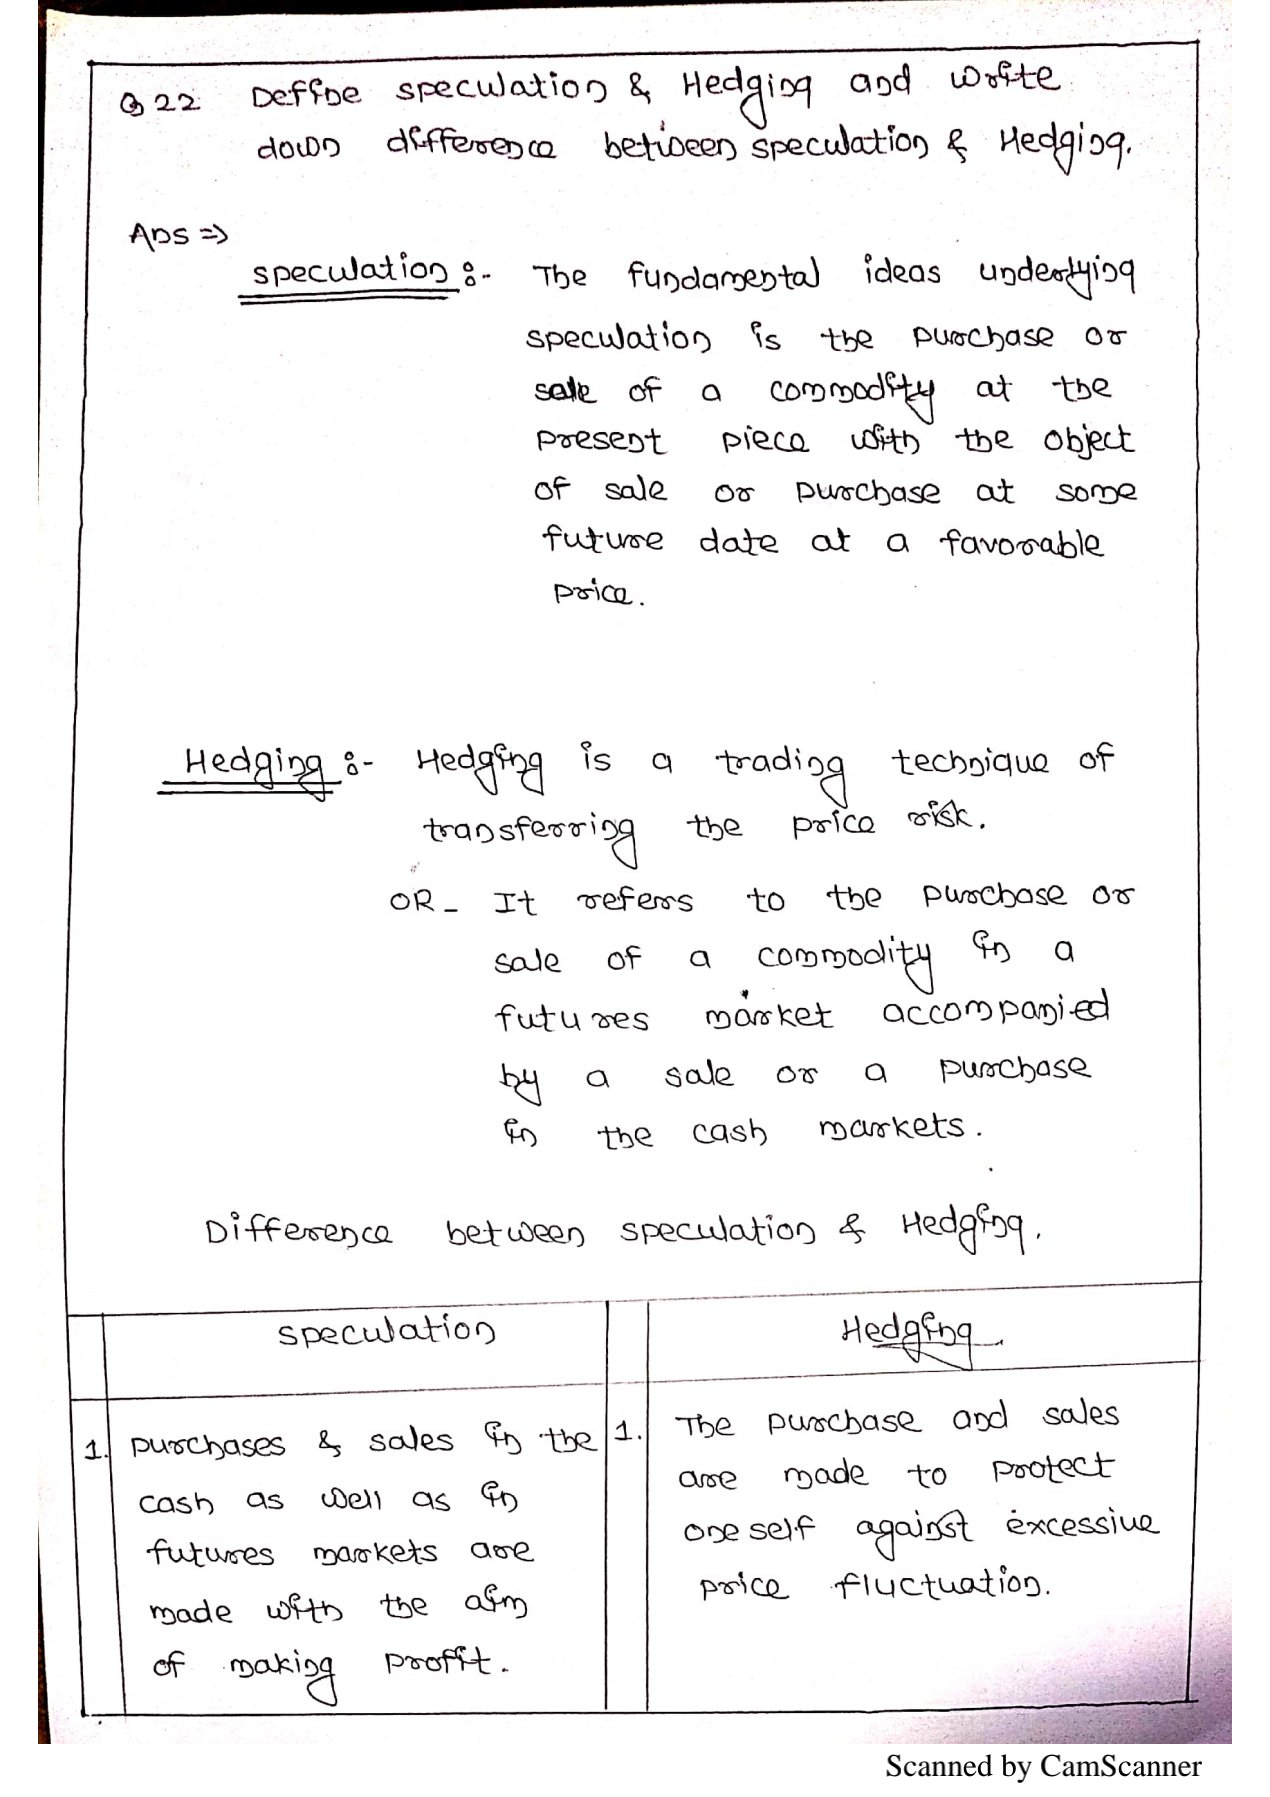 Q 22 Define speculation & Hedging and write
down difference between speculation & Hedging.
Ans ⇒
speculation :- The fundamental ideas underlying
speculation is the purchase or
sale of a commodity at the
present piece with the object
of sale or purchase at some
future date at a favorable
price.
Hedging :- Hedging is a trading technique of
transferring the price risk.
OR - It refers to the purchase or
sale of a commodity in a
futures market accompanied
by a sale or a purchase
in the cash markets.
Difference between speculation & Hedging.
speculation
Hedging
1. purchases & sales in the
cash as well as in
futures markets are
made with the aim
of making profit.
1. The purchase and sales
are made to protect
oneself against excessive
price fluctuation.
Scanned by CamScanner